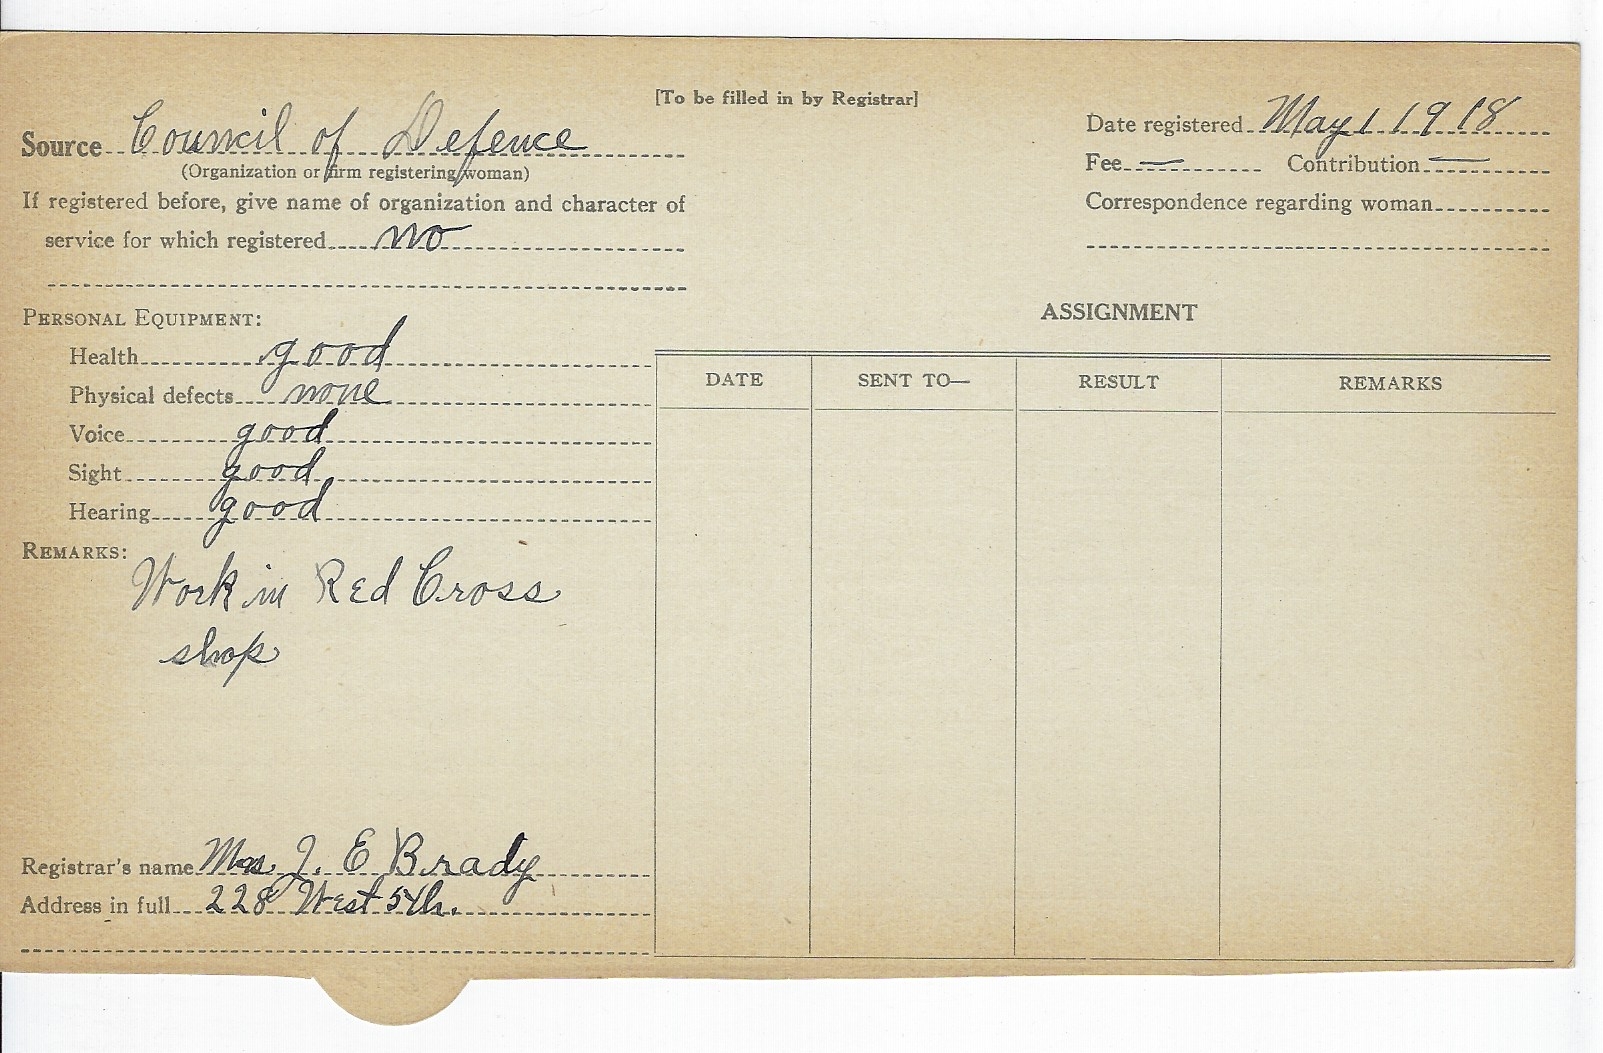 [To be filled in by Registrar]
Source Council of Defence
(Organization or firm registering woman)
If registered before, give name of organization and character of
service for which registered no
Date registered May 1 1918
Fee — Contribution —
Correspondence regarding woman
PERSONAL EQUIPMENT:
Health good
Physical defects none
Voice good
Sight good
Hearing good
REMARKS:
Work in Red Cross
shop
Registrar's name Mrs J. E Brady
Address in full 228 West 5th.
ASSIGNMENT
DATE SENT TO— RESULT REMARKS